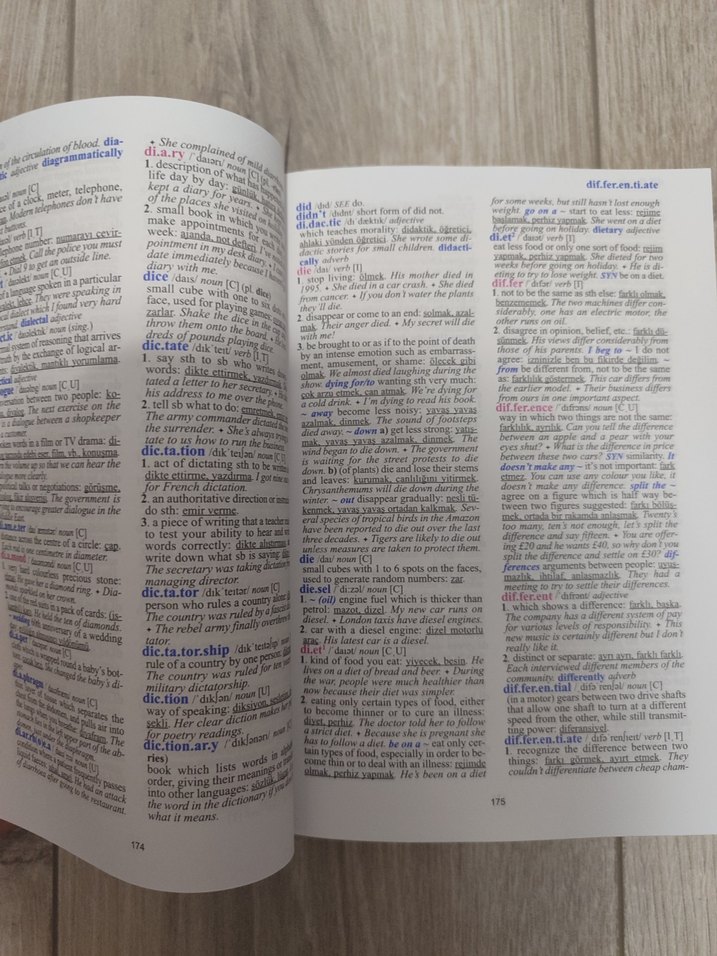 n of the circulation of blood. dia-
tic adjective diagrammatically
noun [C]
of a clock, meter, telephone,
Modern telephones don't have
buttons.
verb [I, T]
telephone number: numarayı çevir-
Call the police you must
Dial 9 to get an outside line.
noun [C U]
of a language spoken in a particular
They were speaking in
dialect which I found very hard
dialectal adjective
noun (sing.)
system of reasoning that arrives
truth by the exchange of logical ar-
mantıklı yorumlama.
adjective
noun [C, U]
conversation between two people: ko-
The next exercise on
is a dialogue between a shopkeeper
customer.
spoken words in a film or TV drama: di-
the volume up so that we can hear the
dialogue more clearly.
talks or negotiations: görüşme,
The government is
encourage greater dialogue in the
di.am.e.ter noun [C]
distance across the centre of a circle: çap.
one centimetre in diameter.
noun [C, U]
very hard colourless precious stone:
He gave her a diamond ring. + Dia-
sparkled on her crown.
of the red suits in a pack of cards:
He held the ten of diamonds.
wedding 60th anniversary of a wedding
di.a.per noun [C]
cloth which is wrapped round a baby's bot-
She changed the baby's di-
di.a.phragm noun [C]
which separates the
and pulls air into
diyafram. The
part of the ab-
di.ar.rhoe.a noun [U]
when a patient frequently passes
He had an attack
of diarrhoea after going to the restaurant.
+ She complained of mild
di.a.ry /ˈdaɪərɪ/ noun [C]
1. description of what has
life day by day: günlük,
kept a diary for years. +
of the places she visited on
2. small book in which you
make appointments for each
week: ajanda, not defteri. I've
pointment in my desk diary. +
date immediately because I
diary with me.
dice /daɪs/ noun [C] (pl. dice)
small cube with one to six
face, used for playing games
zarlar. Shake the dice in the cup
throw them onto the board. +
dreds of pounds playing dice.
dic.tate /dɪkˈteɪt/ verb [I,T]
1. say sth to sb who writes
words: dikte ettirmek, yazdırmak.
tated a letter to her secretary. +
his address to me over the phone.
2. tell sb what to do: emretmek,
The army commander dictated the
the surrender. + She's always trying
tate to us how to run the business.
dic.ta.tion /dɪkˈteɪʃən/ noun
1. act of dictating sth to be written
dikte ettirme, yazdırma. I got nine
for French dictation.
2. an authoritative direction or instruc
do sth: emir verme.
3. a piece of writing that a teacher
to test your ability to hear and
words correctly: dikte alıştırma
write down what sb is saying:
The secretary was taking dictation
managing director.
dic.ta.tor /dɪkˈteɪtər/ noun
person who rules a country alone
The country was ruled by a fascist
+ The rebel army finally overthrew
tator.
dic.ta.tor.ship /dɪkˈteɪtəʃɪp/ noun
rule of a country by one person:
The country was ruled for ten years
military dictatorship.
dic.tion /ˈdɪkʃən/ noun [U]
way of speaking: diksiyon, seslendirme
şekli. Her clear diction makes her
for poetry readings.
dic.tion.ar.y /ˈdɪkʃənərɪ/ noun [C]
ries)
book which lists words in alphab
order, giving their meanings or trans
into other languages: sözlük,
the word in the dictionary if you
what it means.
174
dif.fer.en.ti.ate
did /dɪd/ SEE do.
didn't /dɪdnt/ short form of did not.
di.dac.tic /dɪˈdæktɪk/ adjective
which teaches morality: didaktik, öğretici,
ahlaki yönden öğretici. She wrote some di-
dactic stories for small children. didacti-
cally adverb
die /daɪ/ verb [I]
1. stop living: ölmek. His mother died in
1995. + She died in a car crash. + She died
from cancer. + If you don't water the plants
they'll die.
2. disappear or come to an end: solmak, azal-
mak. Their anger died. + My secret will die
with me!
3. be brought to or as if to the point of death
by an intense emotion such as embarrass-
ment, amusement, or shame: ölecek gibi
olmak. We almost died laughing during the
show. dying for/to wanting sth very much:
çok arzu etmek, can atmak. We're dying for
a cold drink. + I'm dying to read his book.
~ away become less noisy: yavaş yavaş
azalmak, dinmek. The sound of footsteps
died away. ~ down a) get less strong: yatış-
mak, yavaş yavaş azalmak, dinmek. The
wind began to die down. + The government
is waiting for the street protests to die
down. b) (of plants) die and lose their stems
and leaves: kurumak, canlılığını yitirmek.
Chrysanthemums will die down during the
winter. ~ out disappear gradually: nesli tü-
kenmek, yavaş yavaş ortadan kalkmak. Sev-
eral species of tropical birds in the Amazon
have been reported to die out over the last
three decades. + Tigers are likely to die out
unless measures are taken to protect them.
die /daɪ/ noun [C]
small cubes with 1 to 6 spots on the faces,
used to generate random numbers: zar.
die.sel /ˈdiːzəl/ noun [C,U]
1. ~ (oil) engine fuel which is thicker than
petrol: mazot, dizel. My new car runs on
diesel. + London taxis have diesel engines.
2. car with a diesel engine: dizel motorlu
araç. His latest car is a diesel.
di.et¹ /ˈdaɪət/ noun [C,U]
1. kind of food you eat: yiyecek, besin. He
lives on a diet of bread and beer. + During
the war, people were much healthier than
now because their diet was simpler.
2. eating only certain types of food, either
to become thinner or to cure an illness:
diyet, perhiz. The doctor told her to follow a
strict diet. + Because she is pregnant she
has to follow a diet. be on a ~ eat only cer-
tain types of food, especially in order to be-
come thin or to deal with an illness: rejimde
olmak, perhiz yapmak. He's been on a diet
for some weeks, but still hasn't lost enough
weight. go on a ~ start to eat less: rejime
başlamak, perhiz yapmak. She went on a diet
before going on holiday. dietary adjective
di.et² /ˈdaɪət/ verb [I]
eat less food or only one sort of food: rejim
yapmak, perhiz yapmak. She dieted for two
weeks before going on holiday. + He is di-
eting to try to lose weight. SYN be on a diet.
dif.fer /ˈdɪfər/ verb [I]
1. not to be the same as sth else: farklı olmak,
benzememek. The two machines differ con-
siderably, one has an electric motor, the
other runs on oil.
2. disagree in opinion, belief, etc.: farklı dü-
şünmek. His views differ considerably from
those of his parents. I beg to ~ I do not
agree: izninizle ben bu fikirde değilim. ~
from be different from, not to be the same
as: farklılık göstermek. This car differs from
the earlier model. + Their business differs
from ours in one important aspect.
dif.fer.ence /ˈdɪfrəns/ noun [C, U]
way in which two things are not the same:
farklılık, ayrılık. Can you tell the difference
between an apple and a pear with your
eyes shut? + What is the difference in price
between these two cars? SYN similarity. It
doesn't make any ~ it's not important: fark
etmez. You can use any colour you like, it
doesn't make any difference. split the ~
agree on a figure which is half way be-
tween two figures suggested: farkı bölüş-
mek, ortada bir rakamda anlaşmak. Twenty's
too many, ten's not enough, let's split the
difference and say fifteen. + You are offer-
ing £20 and he wants £40, so why don't you
split the difference and settle on £30? dif-
ferences arguments between people: uyuş-
mazlık, ihtilaf, anlaşmazlık. They had a
meeting to try to settle their differences.
dif.fer.ent /ˈdɪfrənt/ adjective
1. which shows a difference: farklı, başka.
The company has a different system of pay
for various levels of responsibility. + This
new music is certainly different but I don't
really like it.
2. distinct or separate: ayrı ayrı, farklı farklı.
Each interviewed different members of the
community. differently adverb
dif.fer.en.tial /ˌdɪfəˈrenʃəl/ noun [C]
(in a motor) gears between two drive shafts
that allow one shaft to turn at a different
speed from the other, while still transmit-
ting power: diferansiyel.
dif.fer.en.ti.ate /ˌdɪfəˈrenʃɪeɪt/ verb [I,T]
1. recognize the difference between two
things: farkı görmek, ayırt etmek. They
couldn't differentiate between cheap cham-
175